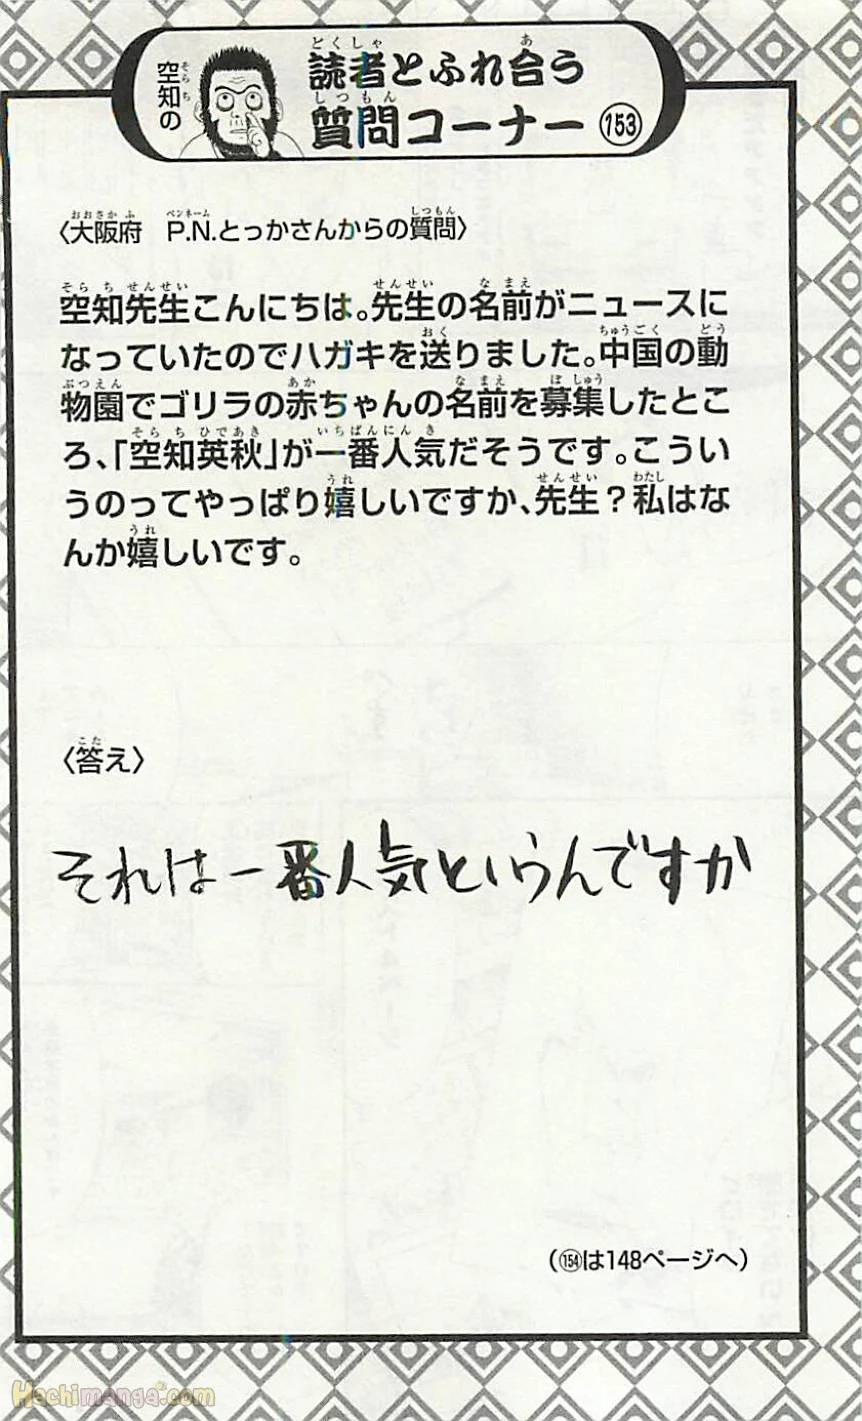 空知の
読者とふれ合う
質問コーナー 153
〈大阪府　P.N.とっかさんからの質問〉
空知先生こんにちは。先生の名前がニュースに
なっていたのでハガキを送りました。中国の動
物園でゴリラの赤ちゃんの名前を募集したとこ
ろ、「空知英秋」が一番人気だそうです。こうい
うのってやっぱり嬉しいですか、先生？私はな
んか嬉しいです。
〈答え〉
それは一番人気というんですか
（154は148ページへ）
Hachimanga.com